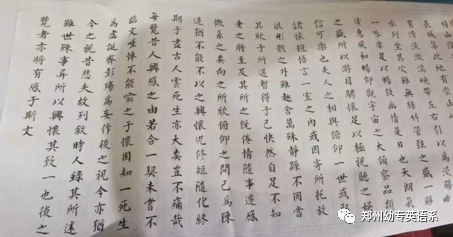 長咸集此地有崇山
有清流激湍映帶左右引以為流觴曲
水列坐其次雖無絲竹管弦之盛一觴
一詠亦足以暢敘幽情是日也天朗氣
清惠風和暢仰觀宇宙之大俯察品類
之盛所以游目騁懷足以極視聽之娛
信可樂也夫人之相與俯仰一世或取
諸懷抱悟言一室之內或因寄所托放
浪形骸之外雖趣舍萬殊靜躁不同當
其欣於所遇暫得于己快然自足不知
老之將至及其所之既倦情隨事遷感
慨系之矣向之所欣俯仰之間已為陳
跡猶不能不以之興懷況修短隨化終
期于盡古人雲死生亦大矣豈不痛哉
每覽昔人興感之由若合一契未嘗不
臨文嗟悼不能喻之于懷固知一死生
為虛誕齊彭殤為妄作後之視今亦猶
今之視昔悲夫故列敘時人錄其所述
雖世殊事異所以興懷其致一也後之
覽者亦將有感于斯文
郑州幼专英语系